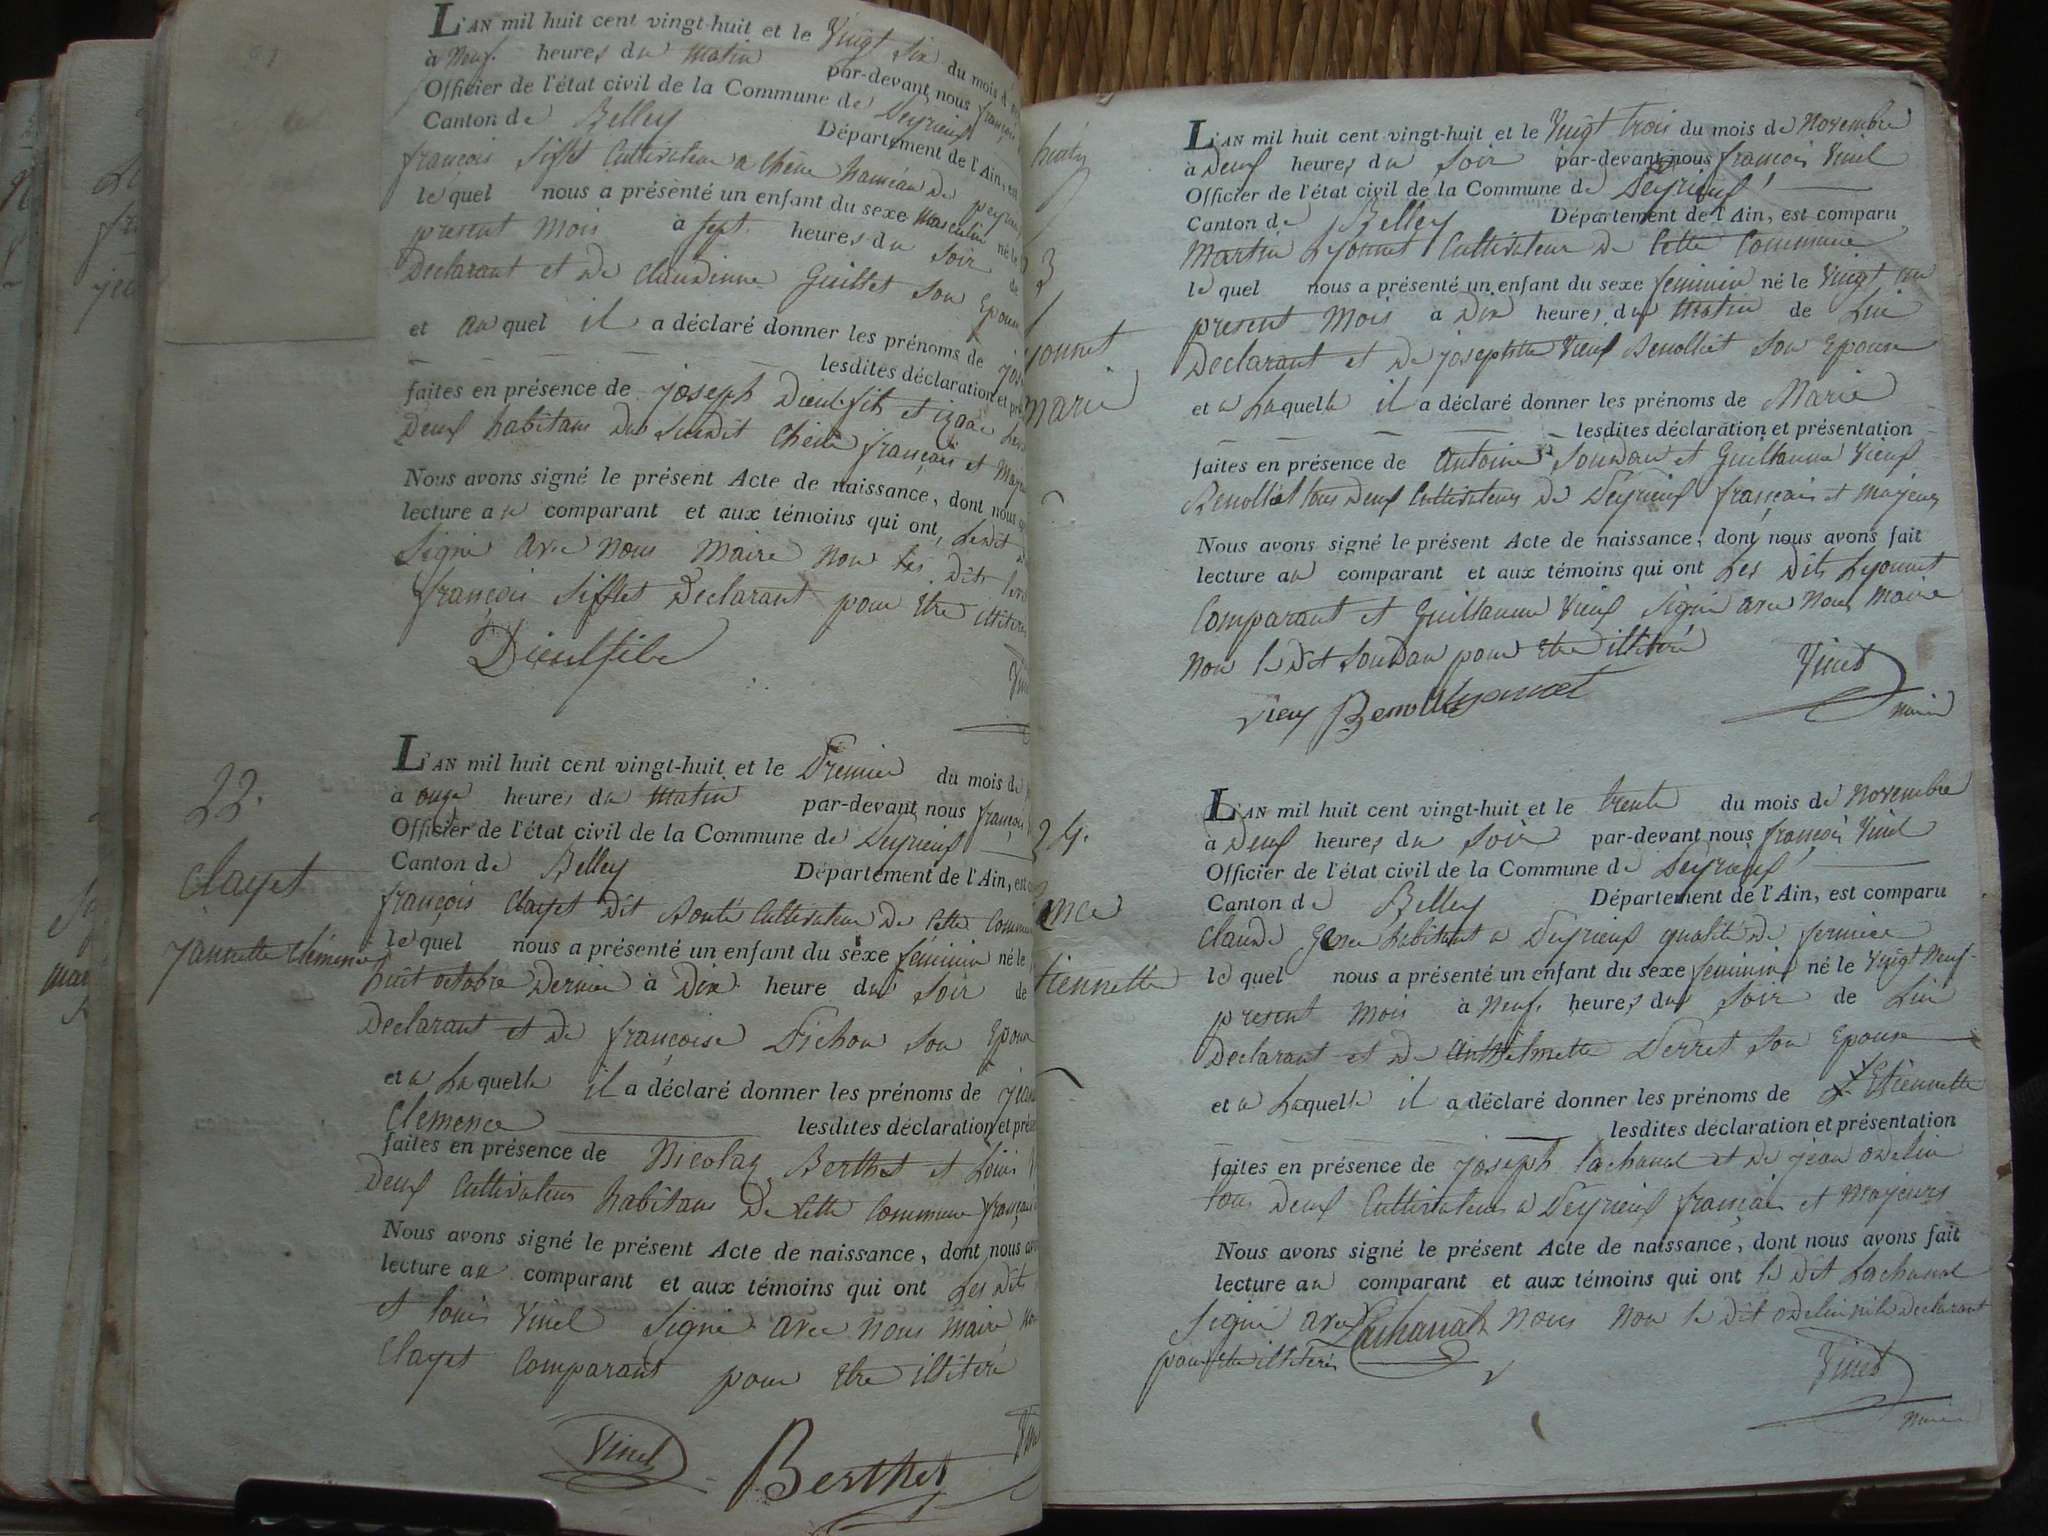 L'AN mil huit cent vingt-huit et le Vingt Six du mois d'
à Neuf heures du Matin par-devant nous françois
Officier de l'état civil de la Commune de Peyrieux
Canton de Belley Département de l'Ain, est
françois Sifflet Cultivateur a Chêne hameau de peyrieux
le quel nous a présenté un enfant du sexe Masculin né le
present Mois à Sept heures du Soir de
Declarant et de Claudinne Guillet Son Epouse
et au quel il a déclaré donner les prénoms de
lesdites déclaration et
faites en présence de joseph Dieulefils et izaac
Deux habitans du Susdit Chêne français et Majeurs
Nous avons signé le présent Acte de naissance, dont nous
lecture au comparant et aux témoins qui ont, Ledit
Signé avec Nous Maire Non les dits
françois Sifflet Declarant pour être illitérés
22.
Clayet
jannette Clémence
L'AN mil huit cent vingt-huit et le Premier du mois de
à onze heures du Matin par-devant nous françois
Officier de l'état civil de la Commune de Peyrieux
Canton de Belley Département de l'Ain, est
françois Clayet dit Cultivateur de Cette Commune
le quel nous a présenté un enfant du sexe féminin né le
huit octobre Dernier à Dix heure du Soir de
Declarant et de françoise Pichon Son Epouse
et a Laquelle il a déclaré donner les prénoms de
Clemence lesdites déclaration et
faites en présence de Nicolas Berthet et Louis
Deux Cultivateurs habitans De Cette Commune français
Nous avons signé le présent Acte de naissance, dont nous
lecture au comparant et aux témoins qui ont Les dits
et Louis Vinel Signé avec Nous Maire
Clayet Comparant pour être illitéré
Vinel
Berthet
23
yonnet
marie
L'AN mil huit cent vingt-huit et le Vingt trois du mois de Novembre
à Deux heures du Soir par-devant nous françois Vinel
Officier de l'état civil de la Commune de Peyrieux
Canton de Belley Département de l'Ain, est comparu
Martin Lyonnet Cultivateur de Cette Commune
le quel nous a présenté un enfant du sexe feminin né le Vingt un
present Mois à Dix heures du Matin de Lui
Declarant et de josephtte Vieux Benolliet Son Epouse
et a Laquelle il a déclaré donner les prénoms de Marie
lesdites déclaration et présentation
faites en présence de Antoine Soudan et Guillaume Vieux
Benolliet tous deux Cultivateurs de Peyrieux français et Majeurs
Nous avons signé le présent Acte de naissance, dont nous avons fait
lecture au comparant et aux témoins qui ont Les dits Lyonnet
Comparant et Guillaume Vieux Signé avec Nous Maire
Non le dit Soudan pour être illitéré
Vinel
maire
24.
tiennette
L'AN mil huit cent vingt-huit et le trente du mois de Novembre
à Deux heures du Soir par-devant nous françois Vinel
Officier de l'état civil de la Commune de Peyrieux
Canton de Belley Département de l'Ain, est comparu
Claude habitant a Peyrieux qualité de fermier
le quel nous a présenté un enfant du sexe feminin né le Vingt Neuf
present Mois à Neuf heures du Soir de Lui
Declarant et de Anthelmette Perret Son Epouse
et a Laquelle il a déclaré donner les prénoms de Etiennette
lesdites déclaration et présentation
faites en présence de joseph Lachanal et de jean odelin
tous deux Cultivateurs a Peyrieux français et Majeurs
Nous avons signé le présent Acte de naissance, dont nous avons fait
lecture au comparant et aux témoins qui ont le dit Lachanal
Signé avec Nous Non le dit odelin ni le Declarant
pour être illitérés
Lachanal
Vinel
maire